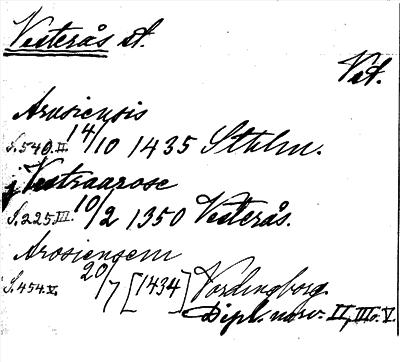 Vesterås st.
Vst.
Arusiensis
S.540.II. 14/10 1435 Sthlm.
j Vestraarose
S.225.III. 10/2 1350 Vesterås.
Arosiensem
S.454.V. 20/7 [1434] Vordingborg.
Dipl. norv. II, III. V.